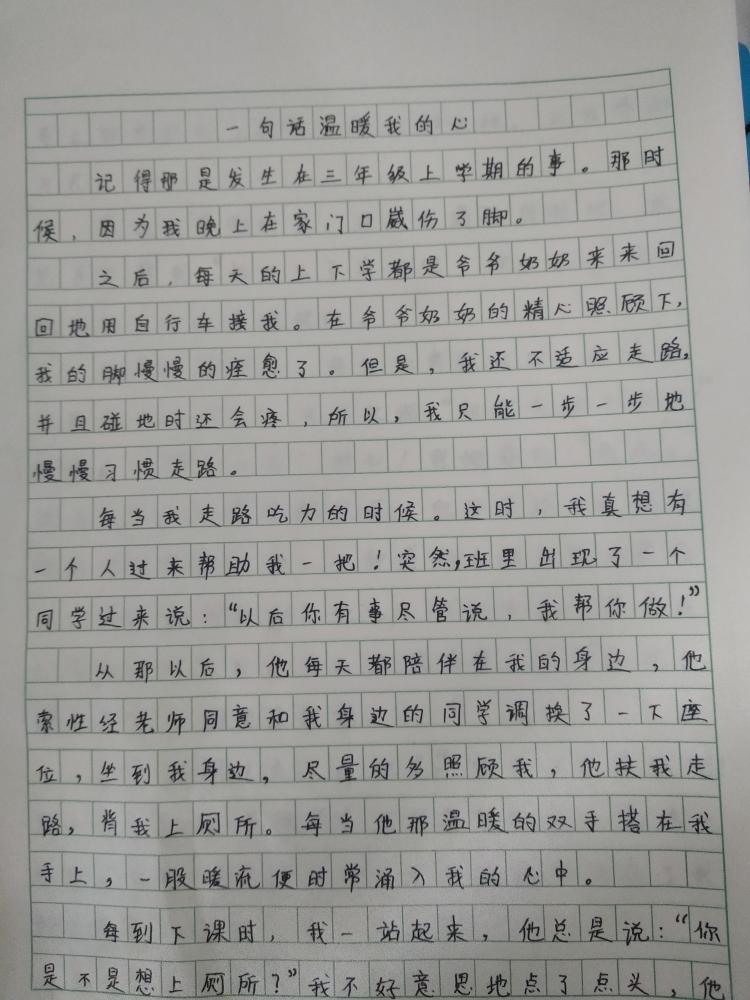 一句话温暖我的心
记得那是发生在三年级上学期的事。那时
候，因为我晚上在家门口崴伤了脚。
之后，每天的上下学都是爷爷奶奶来来回
回地用自行车接我。在爷爷奶奶的精心照顾下，
我的脚慢慢的痊愈了。但是，我还不适应走路，
并且碰地时还会疼，所以，我只能一步一步地
慢慢习惯走路。
每当我走路吃力的时候。这时，我真想有
一个人过来帮助我一把！突然，班里出现了一个
同学过来说：“以后你有事尽管说，我帮你做！”
从那以后，他每天都陪伴在我的身边，他
索性经老师同意和我身边的同学调换了一下座
位，坐到我身边，尽量的多照顾我，他扶我走
路，背我上厕所。每当他那温暖的双手搭在我
手上，一股暖流便时常涌入我的心中。
每到下课时，我一站起来，他总是说：“你
是不是想上厕所？”我不好意思地点了点头，他